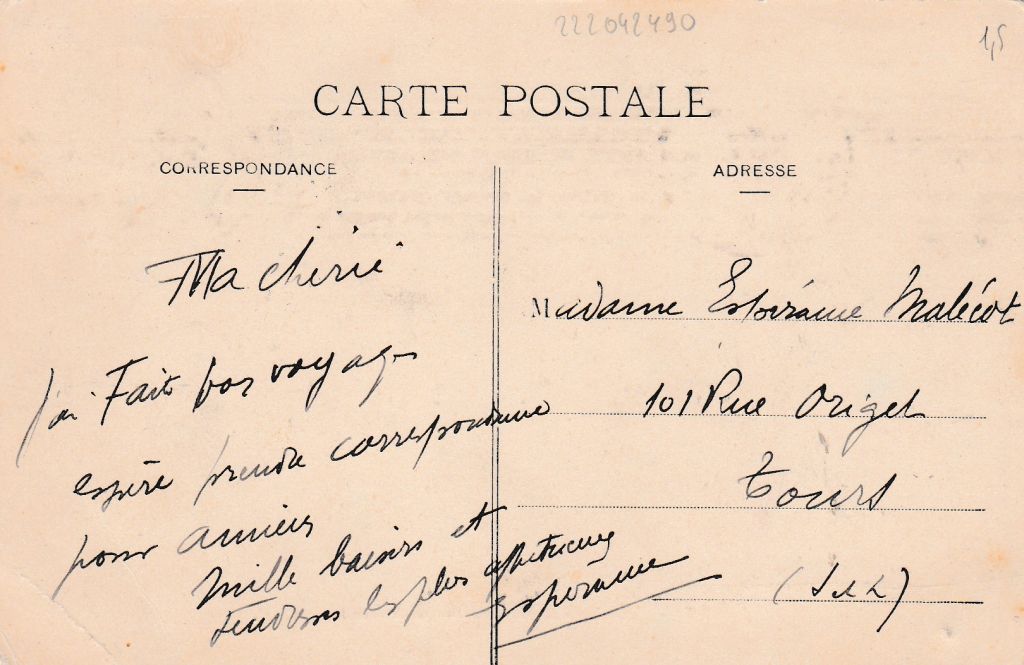 222042490
1,5
CARTE POSTALE
CORRESPONDANCE
ADRESSE
Ma chérie
j'ai Fait bon voyage
espère prendre correspondance
pour
Mille baisers et
les plus affectueuses
Espérance
Madame Espérance Malécot
101 Rue Origet
Tours
(I et L)